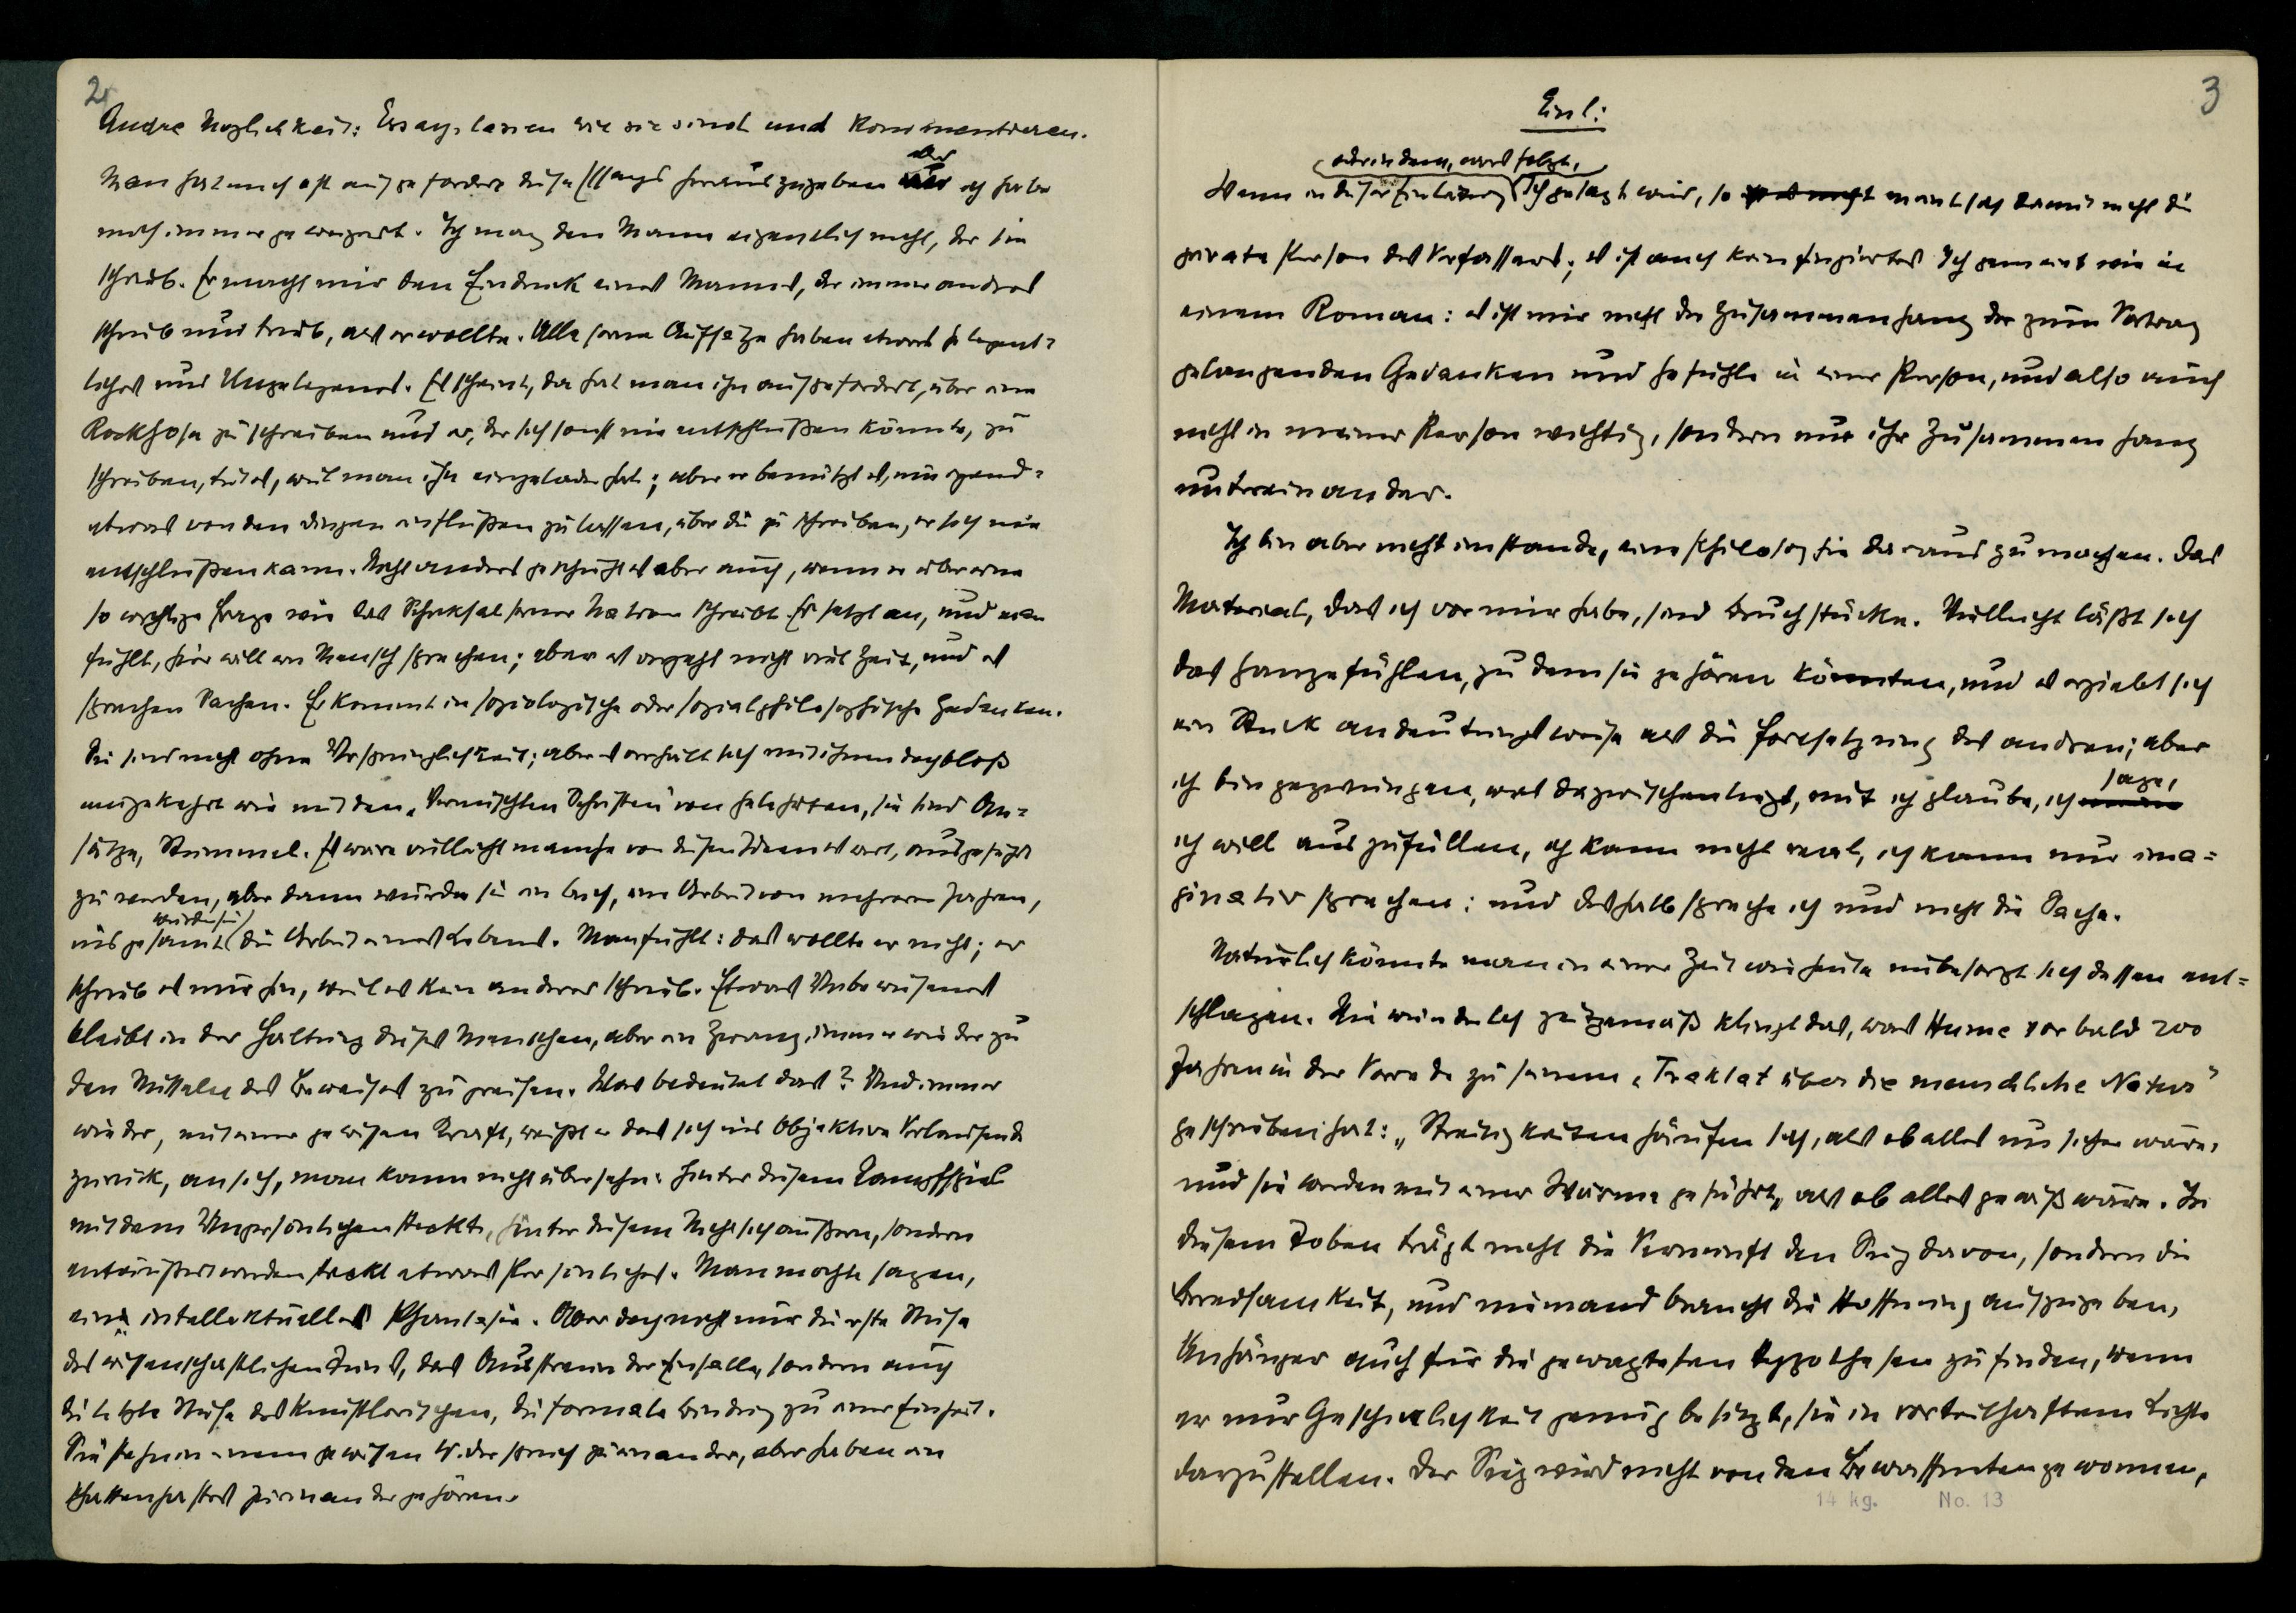 2
Andre Möglichkeit: Essays lassen wie sie sind und kommentieren.
Man hat mich oft aufgefordert diese Essays herauszugeben aber ich habe
mich immer geweigert. Ich mag den Mann eigentlich nicht, der sie
schrieb. Er macht mir den Eindruck eines Mannes, der immer andres
schrieb und trieb, als er wollte. Alle seine Aufsätze haben etwas Gelegent=
liches und Ungelegenes. Es scheint, da hat man ihn aufgefordert, über eine
Rockhose zu schreiben und er, der sich sonst nie entschließen könnte, zu
schreiben, tut es, weil man ihn eingeladen hat; aber er benützt es, um irgend=
etwas von den Dingen einfließen zu lassen, über die zu schreiben, er sich nie
entschließen kann. Nicht anders geschieht es aber auch, wenn er über eine
so wichtige Frage wie das Schicksal seiner Nation schreibt. Er setzt an, und man
fühlt, hier will ein Mensch sprechen; aber es vergeht nicht viel Zeit, und es
sprechen Sachen. Er kommt in soziologische oder sozialphilosophische Gedanken.
Sie sind nicht ohne Ursprünglichkeit; aber es verhält sich mit ihnen doch bloß
umgekehrt wie mit den „Vermischten Schriften" von Gelehrten, sie sind An=
sätze, Stummel. Es wäre vielleicht manche von diesen Ideen es wert, ausgeführt
zu werden, aber dann würde sie ein Buch, eine Arbeit von mehreren Jahren,
insgesamt würden sie die Arbeit eines Lebens. Man fühlt: das wollte er nicht; er
schrieb es nur hin, weil es kein anderer schrieb. Etwas Unbewiesenes
bleibt in der Haltung dieses Menschen, aber ein Zwang, immer wieder zu
den Mitteln des Beweises zu greifen. Was bedeutet das? Und immer
wieder, mit einer gewissen Kraft, reißt er das sich ins Objektive Verlaufende
zurück, an sich, man kann nicht übersehn: hinter diesem Kampfspiel
mit dem Unpersönlichen steckt, hinter diesem Nicht sich äußern, sondern
entäußert werden steckt etwas Persönliches. Man möchte sagen,
eine intellektuelle Phantasie. Aber doch nicht nur die erste Stufe
des wissenschaftlichen Tuns, das Ausstreun der Einfälle, sondern auch
die letzte Stufe des Künstlerischen, die formale Bindung zu einer Einheit.
Sie stehn in einem gewissen Widerspruch zu einander, aber haben ein
schattenhaftes zueinander gehören.
3
Einl:
oder in dem, was folgt,
Wenn in dieser Einleitung Ich gesagt wird, so ist es nicht meint sich damit nicht die
private Person des Verfassers; es ist auch kein fingiertes Ich gemeint wie in
einem Roman: es ist mir nicht der Zusammenhang der zum Vortrag
gelangenden Gedanken und Gefühle in einer Person, und also auch
nicht in meiner Person wichtig, sondern nur ihr Zusammenhang
untereinander.
Ich bin aber nicht imstande, eine Philosophie daraus zu machen. Das
Material, das ich vor mir habe, sind Bruchstücke. Vielleicht läßt sich
das Ganze fühlen, zu dem sie gehören könnten, und es ergiebt sich
ein Stück andeutungsweise als die Fortsetzung des andren; aber
ich bin gezwungen, was dazwischenliegt, mit ich glaube, ich sage,
ich will auszufüllen, ich kann nicht real, ich kann nur ima=
ginativ sprechen: und deshalb spreche ich und nicht die Sache.
Natürlich könnte man in einer Zeit wie heute unbesorgt sich dessen ent=
schlagen. Wie wunderlich zeitgemäß klingt das, was Hume vor bald 200
Jahren in der Vorrede zu seinem „Traktat über die menschliche Natur"
geschrieben hat: „Streitigkeiten häufen sich, als ob alles unsicher wäre,
und sie werden mit einer Wärme geführt, als ob alles gewiß wäre. In
diesem Toben trägt nicht die Vernunft den Sieg davon, sondern die
Beredsamkeit, und niemand braucht die Hoffnung aufzugeben,
Anhänger auch für die gewagtesten Hypothesen zu finden, wenn
er nur Geschicklichkeit genug besitzt, sie in vorteilhaftem Lichte
darzustellen. Der Sieg wird nicht von den Bewaffneten gewonnen,
14 kg. No. 13